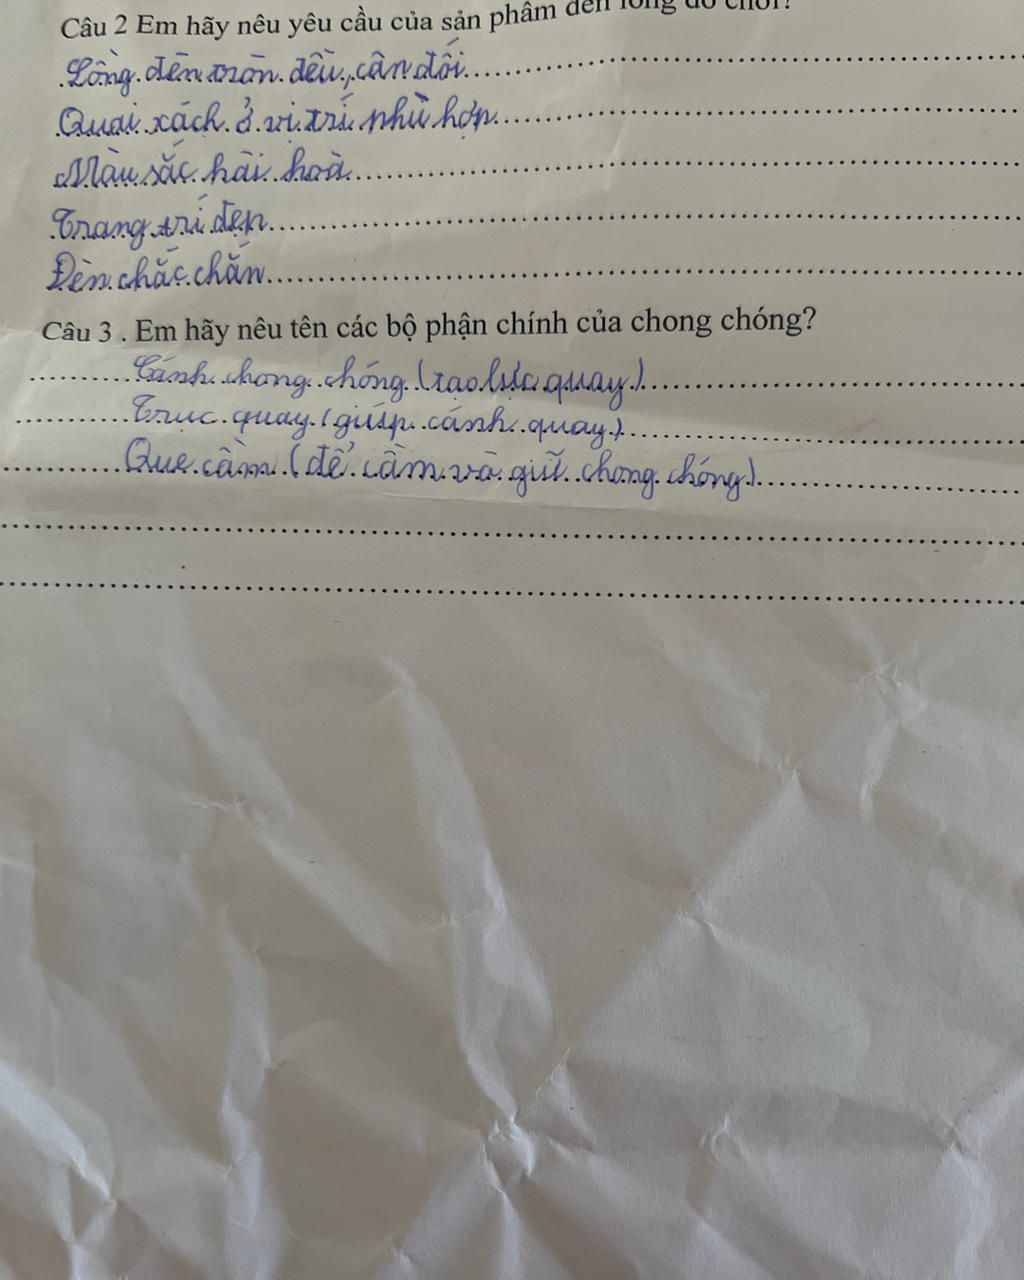 Câu 2 Em hãy nêu yêu cầu của sản phẩm đèn lồng đồ chơi?
Lồng đèn tròn đều, cân đối
Quai xách ở vị trí phù hợp
Màu sắc hài hoà
Trang trí đẹp
Đèn chắc chắn
Câu 3 . Em hãy nêu tên các bộ phận chính của chong chóng?
Cánh chong chóng (tạo lực quay)
Trục quay (giúp cánh quay)
Que cầm (để cầm và giữ chong chóng)